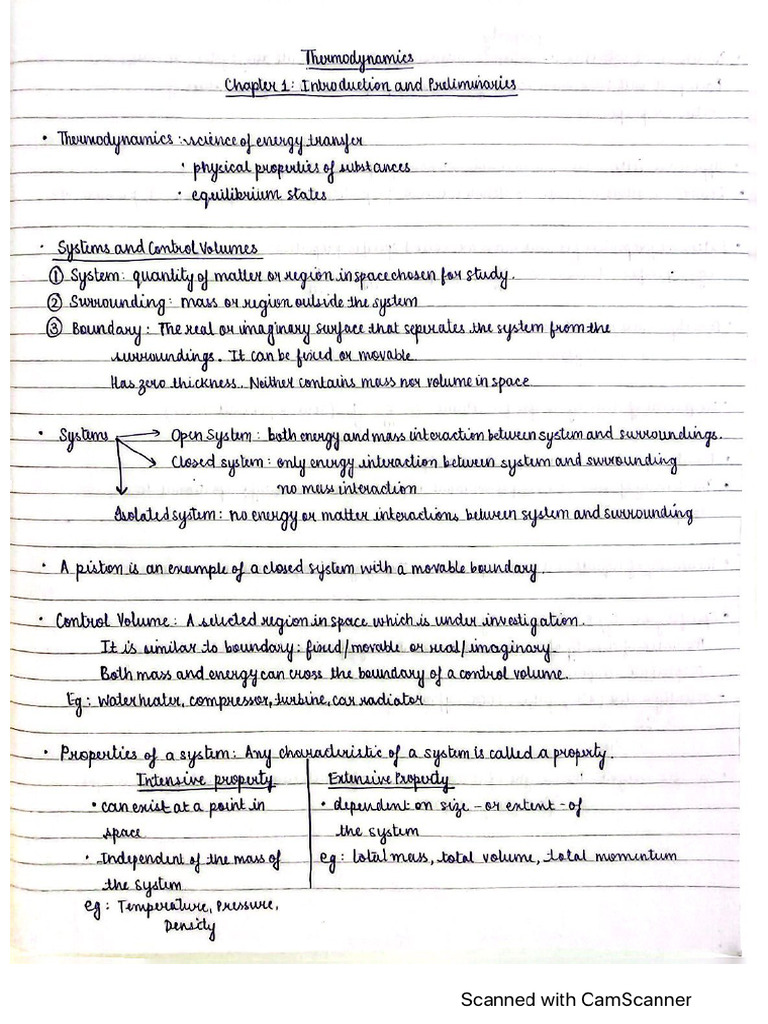 Thermodynamics
Chapter 1: Introduction and Preliminaries
• Thermodynamics: science of energy transfer
• physical properties of substances
• equilibrium states
• Systems and Control Volumes
① System: quantity of matter or region in space chosen for study.
② Surrounding: mass or region outside the system
③ Boundary: The real or imaginary surface that seperates the system from the
surroundings. It can be fixed or movable
Has zero thickness. Neither contains mass nor volume in space
• Systems → Open System: both energy and mass interaction between system and surroundings.
Closed system: only energy interaction between system and surrounding
no mass interaction
Isolated system: no energy or matter interactions between system and surrounding
• A piston is an example of a closed system with a movable boundary.
• Control Volume: A selected region in space which is under investigation.
It is similar to boundary: fixed/movable or real/imaginary.
Both mass and energy can cross the boundary of a control volume.
Eg: water heater, compressor, turbine, car radiator
• Properties of a system: Any characteristic of a system is called a property.
Intensive property
• can exist at a point in
space
• Independent of the mass of
the system
eg: Temperature, Pressure,
Density
Extensive Property
• dependent on size -or extent -of
the system
eg: total mass, total volume, total momentum
Scanned with CamScanner